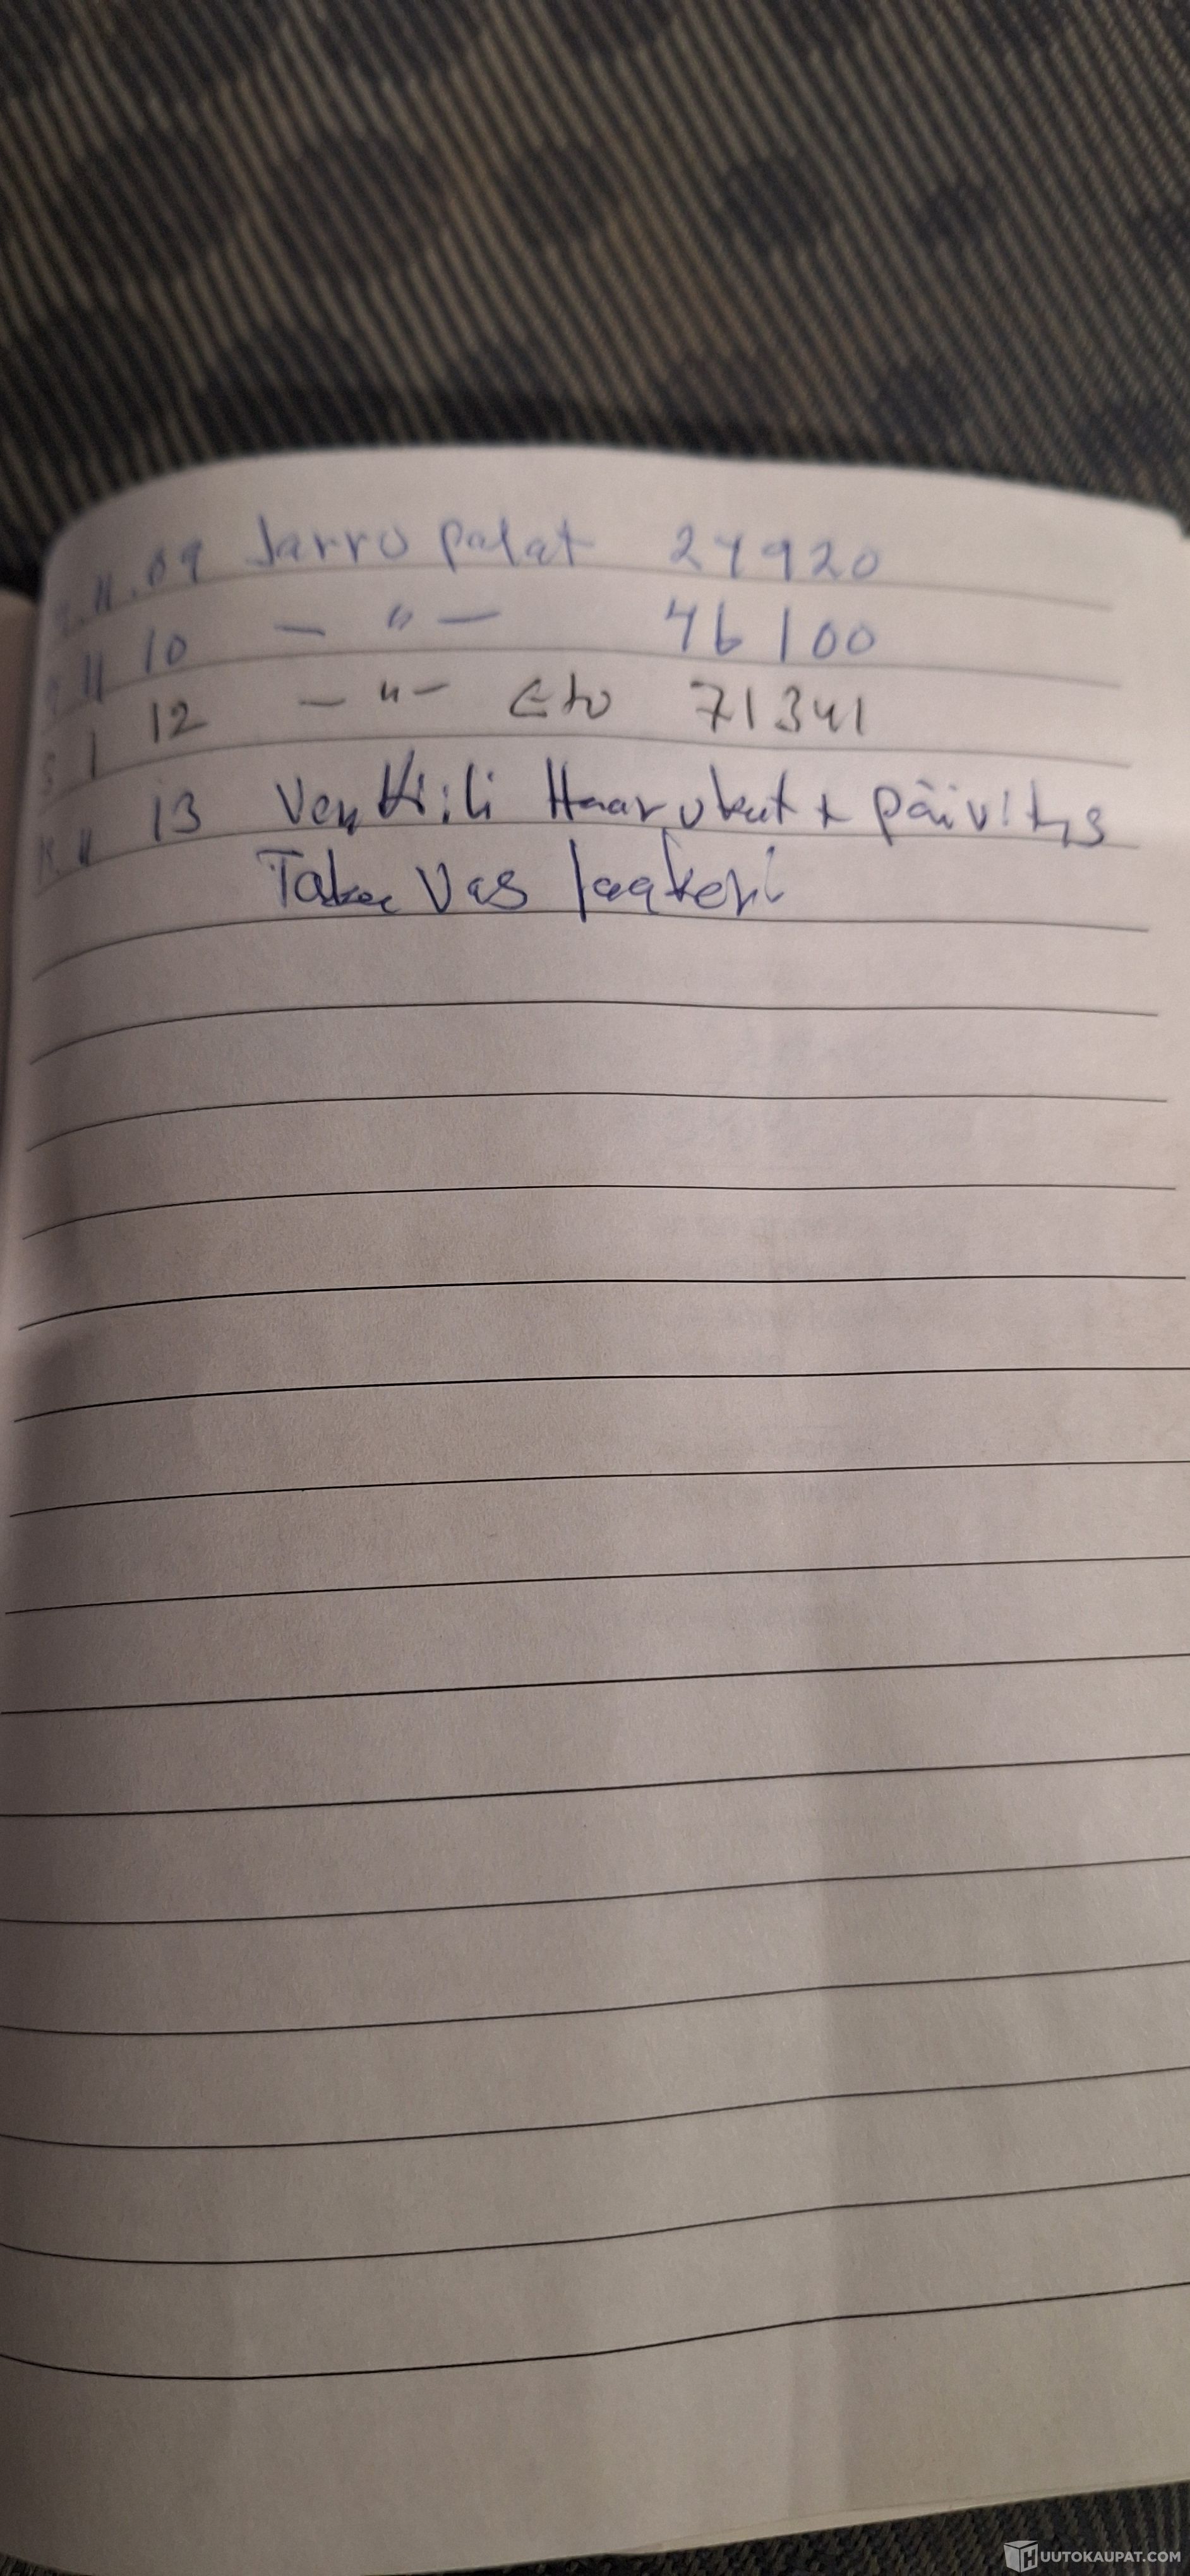 .11.09 Jarru palat 27920
11 10 — " — 46100
1 12 — " — Etu 71341
11 13 Venttiili Haarukat + päivitys
Taka Vas laakeri
HUUTOKAUPAT.COM